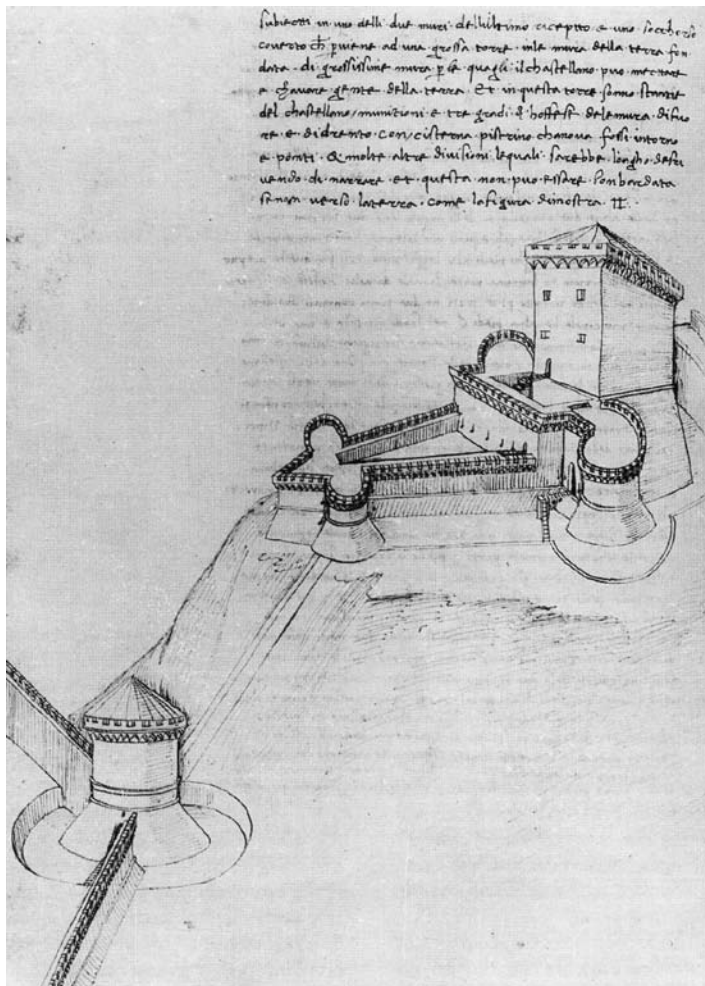 subietti in uno delli due muri dellultimo ricepto e uno socchorso
coverto ch perviene ad una grossa torre inle mura della terra fon
data di grossissime mura p le quagli il chastellano puo mectare
e chavare gente della terra. Et in questa torre sonno stantie
del chastellano/munitioni e tre gradi d hoffese dele mura di fuo
re e didrento con/cisterna pistrino chanova fossi intorno
e ponti. & molte altre divisioni lequali sarebbe longho descri
vendo di narrare et questa non puo essare bonbardata
senon verso laterra. come lafigura dimostra